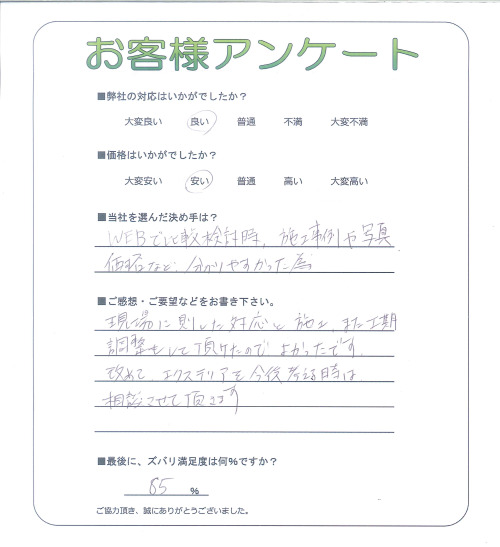 お客様アンケート
■弊社の対応はいかがでしたか?
大変良い 良い 普通 不満 大変不満
■価格はいかがでしたか?
大変安い 安い 普通 高い 大変高い
■当社を選んだ決め手は?
WEBで比較検討時、施工事例や写真
価格など、分かりやすかった為
■ご感想・ご要望などをお書き下さい。
現場に則した対応と施工、また工期
調整もして頂けたのでよかったです。
改めて、エクステリアを今後考える時は
相談させて頂きます
■最後に、ズバリ満足度は何%ですか?
85 %
ご協力頂き、誠にありがとうございました。